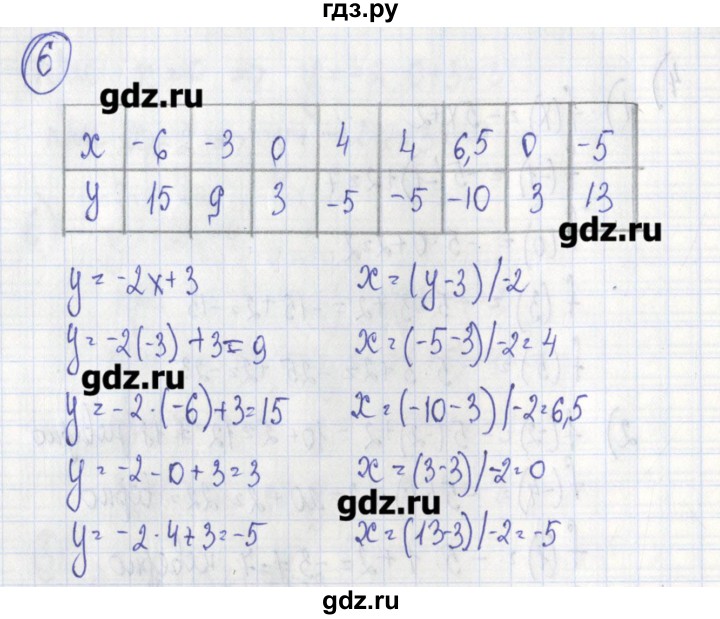 гдз.ру
6
gdz.ru
x -6 -3 0 4 4 6,5 0 -5
y 15 9 3 -5 -5 -10 3 13
gdz.ru
y = -2x+3
x = (y-3)/-2
y = -2(-3) +3 = 9
x = (-5-3)/-2 = 4
gdz.ru
y = -2·(-6)+3=15
x = (-10-3)/-2=6,5
y = -2 - 0 + 3 = 3
x = (3-3)/-2=0
gdz.ru
y = -2·4+3=-5
x = (13-3)/-2=-5
gdz.ru